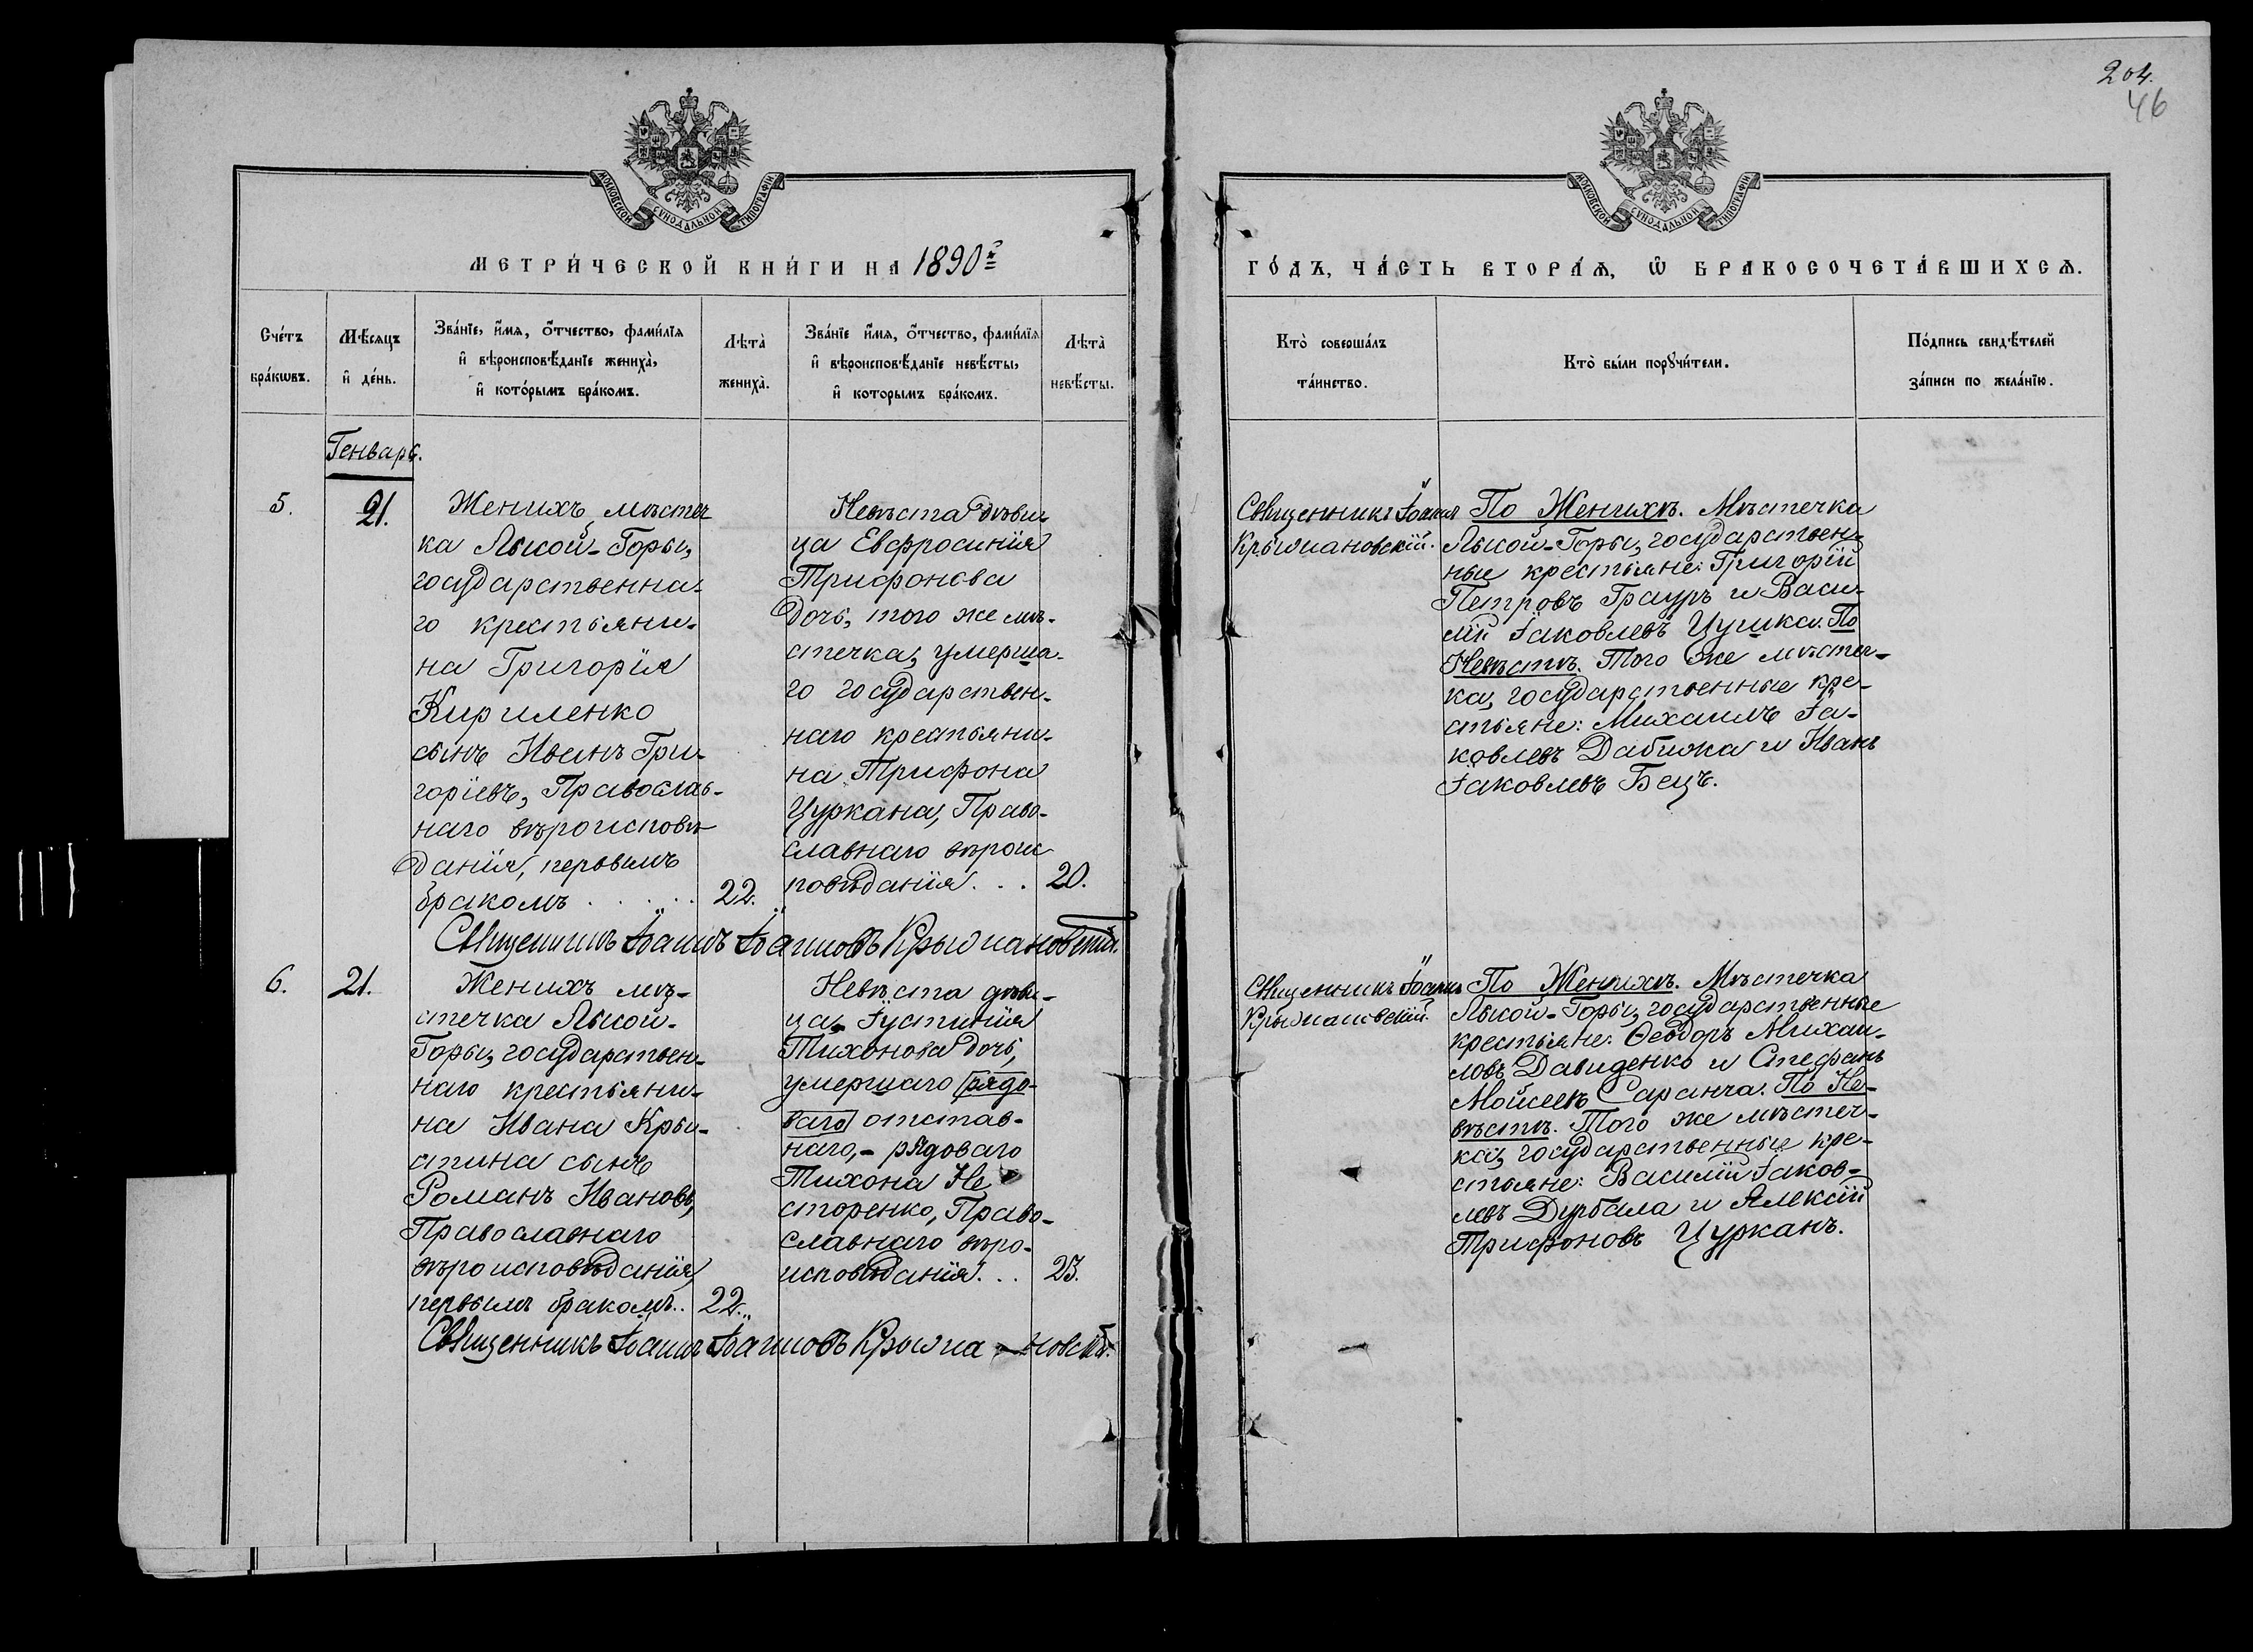 204.
46
МОСКОВСКОЙ СѴНОДАЛЬНОЙ ТИПОГРАФІИ
МОСКОВСКОЙ СѴНОДАЛЬНОЙ ТИПОГРАФІИ
МЕТРИ́ЧЕСКОЙ КНИ́ГИ НА 1890й
ГО́ДЪ, ЧА́СТЬ ВТОРА́Ѧ, Ѡ҆ БРАКОСОЧЕТА́ВШИХСѦ.
Сче́тъ бра́кωвъ.
Мѣ́сѧцъ и҆ де́нь.
Зва́нїе, и҆́мѧ, ѻ҆́тчество, фами́лїѧ
и҆ вѣроисповѣ́данїе жениха̀,
и҆ кото́рымъ бра́комъ.
Лѣта̀ жениха̀.
Зва́нїе и҆́мѧ, ѻ҆́тчество, фами́лїѧ
и҆ вѣроисповѣ́данїе невѣ́сты,
и҆ которымъ бра́комъ.
Лѣта̀ невѣ́сты.
Кто̀ соверша́лъ та́инство.
Кто̀ бы́ли порꙋчи́тели.
По́дпись свидѣ́телей за́писи по жела́нїю.
Генварь.
5.
21.
Женихъ, мѣстеч
ка Лысой-Горы,
государственна-
го крестьяни-
на Григорія
Кириленко
сынъ Иванъ Гри-
горіевъ, Православ-
наго вѣроисповѣ
данія, первымъ
бракомъ . . . . . 22.
Невѣста дѣви-
ца Евфросинія
Трифонова
дочь, того же мѣ-
стечка, умерша-
го государствен-
наго крестьяни-
на Трифона
Цуркана, Право-
славнаго вѣроис
повѣданія . . . 20.
Священникъ Іоаннъ
Крыжановскій.
По Женихѣ. Мѣстечка
Лысой-Горы, государствен-
ные крестьяне: Григорій
Петровъ Грауръ и Васи-
лій Іаковлевъ Цушка. По
Невѣстѣ. Того же мѣстеч-
ка, государственные кре-
стьяне: Михаилъ Іа-
ковлевъ Дабижа и Иванъ
Іаковлевъ Бецъ.
Священникъ Іоаннъ Іоанновъ Крыжановскій.
6.
21.
Женихъ мѣ-
стечка Лысой-
Горы, государствен-
наго крестьяни-
на Ивана Кры-
стина сынъ
Романъ Ивановъ,
Православнаго
вѣроисповѣданія,
первымъ бракомъ.. 22.
Невѣста дѣви-
ца Іустинія
Тихонова дочь,
умершаго рядо-
ваго отстав-
наго,- рядоваго
Тихона Не
сторенко, Право-
славнаго вѣро-
исповѣданія. . . 23.
Священникъ Іоаннъ
Крыжановскій.
По Женихѣ. Мѣстечка
Лысой-Горы, государственные
крестьяне: Ѳеодоръ Михаи-
ловъ Давиденко и Стефанъ
Моисеевъ Саранча. По Не-
вѣстѣ. Того же мѣстеч-
ка, государственные кре-
стьяне: Василій Іаков-
левъ Дурбала и Алексій
Трифоновъ Цурканъ.
Священникъ Іоаннъ Іоанновъ Крыжа-новскій.